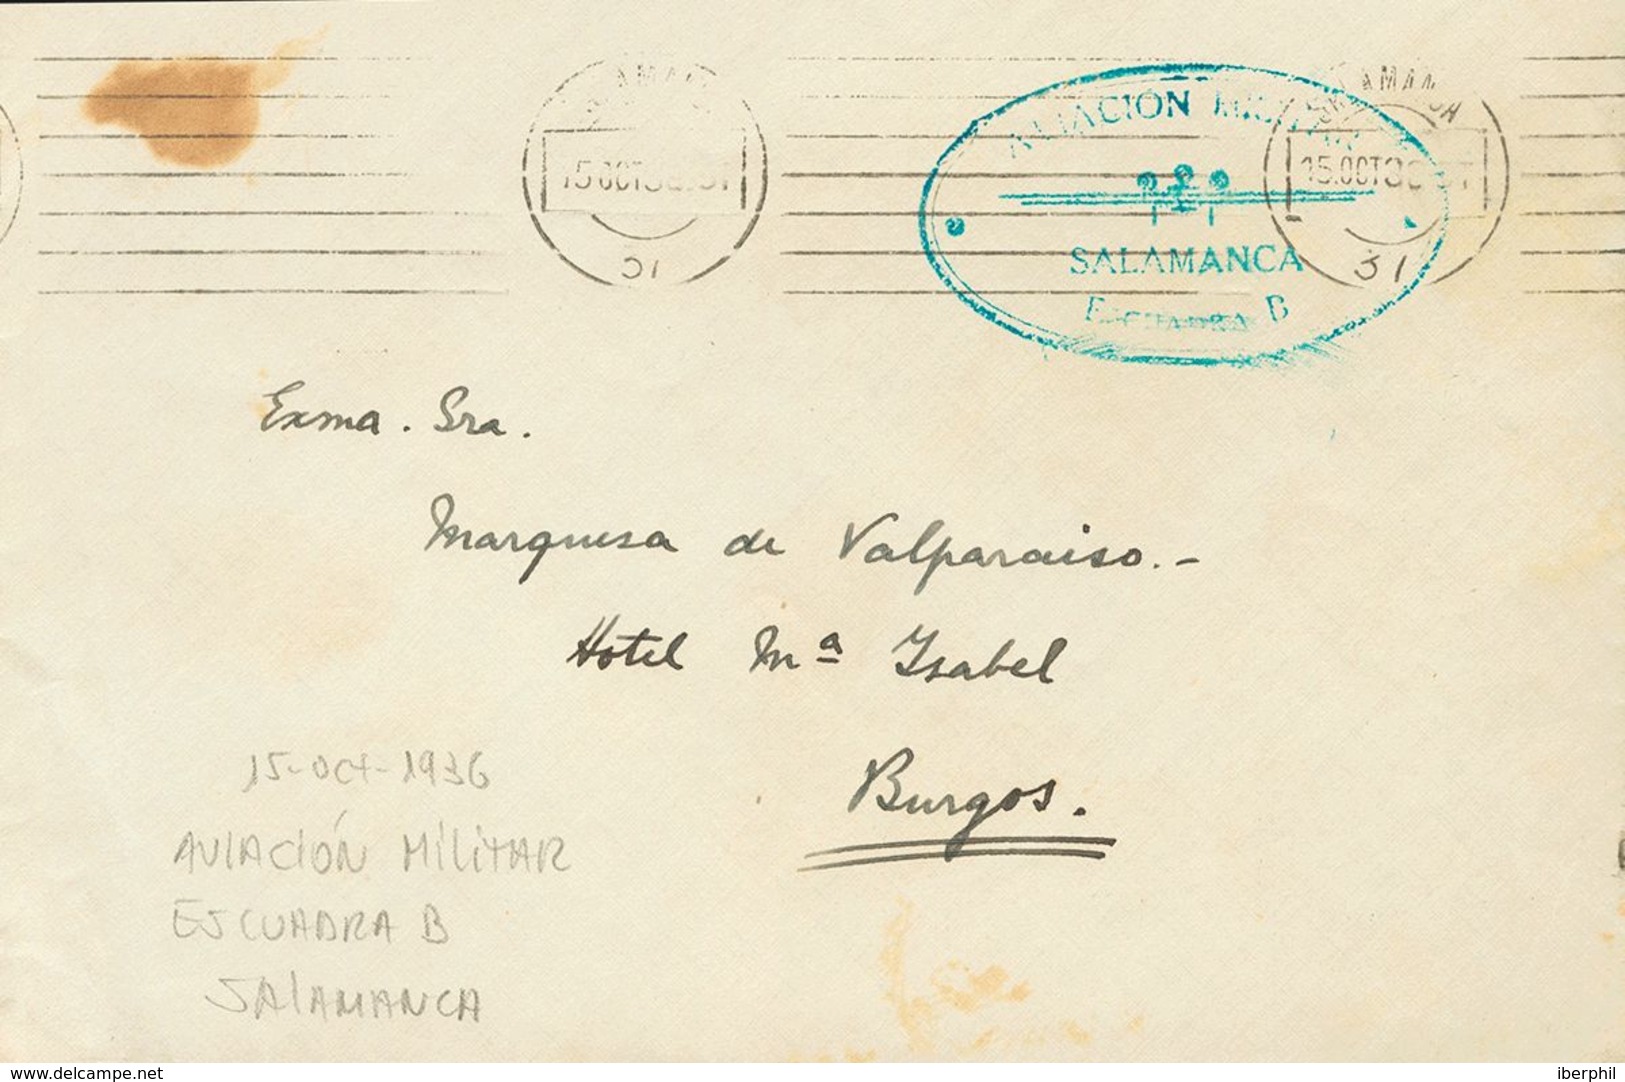 SALAMANCA
15 OCT 36
31
AVIACIÓN MILITAR
SALAMANCA
ESCUADRA B
SALAMANCA
15.OCT 36
31
Exma. Sra.
Marquesa de Valparaiso.-
Hótel Mª Isabel
Burgos.
15-OCT-1936
AVIACIÓN MILITAR
ESCUADRA B
SALAMANCA
www.delcampe.net
iberphil